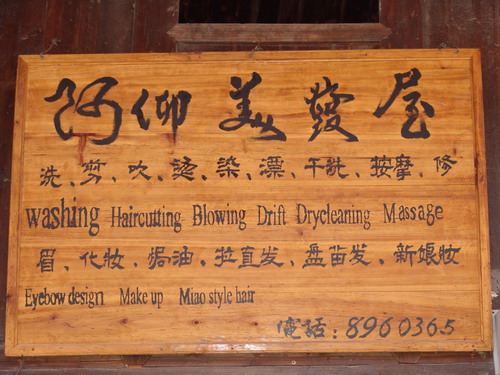 阿仰美發屋
洗、剪、吹、烫、染、漂、干洗、按摩、修
washing Haircutting Blowing Drift Drycleaning Massage
眉、化妆、焗油、拉直发、盘苗发、新娘妆
Eyebow design Make up Miao style hair
電話：8960365